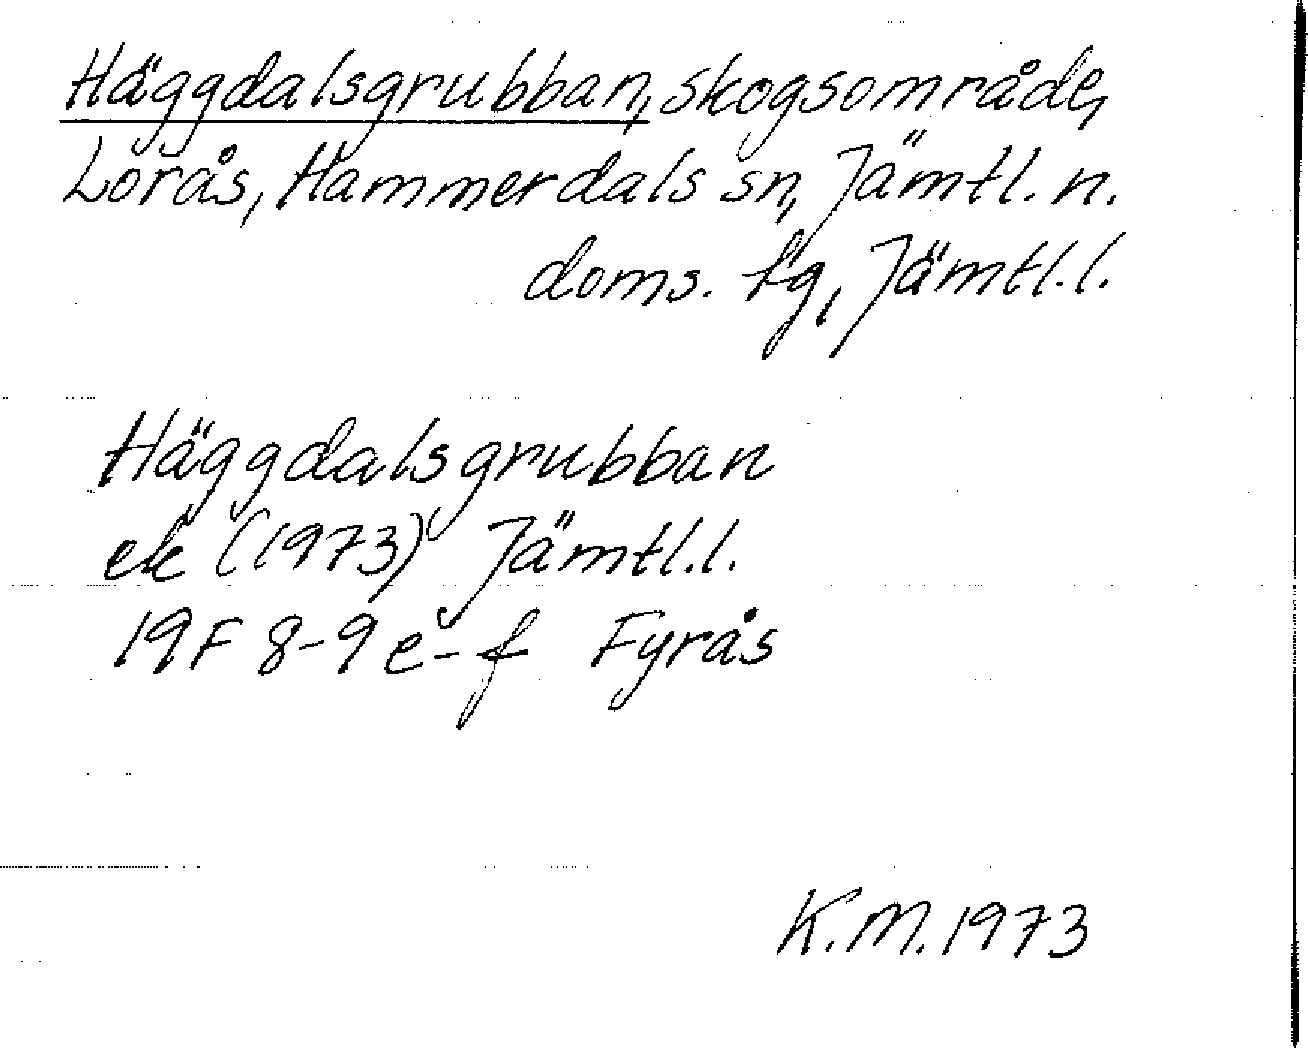 Häggdalsgrubban, skogsområde,
Lorås, Hammerdals sn, Jämtl. n.
doms. tg, Jämtl. l.
Häggdalsgrubban
ek (1973) Jämtl. l.
19F 8-9 e-f Fyrås
K.M. 1973